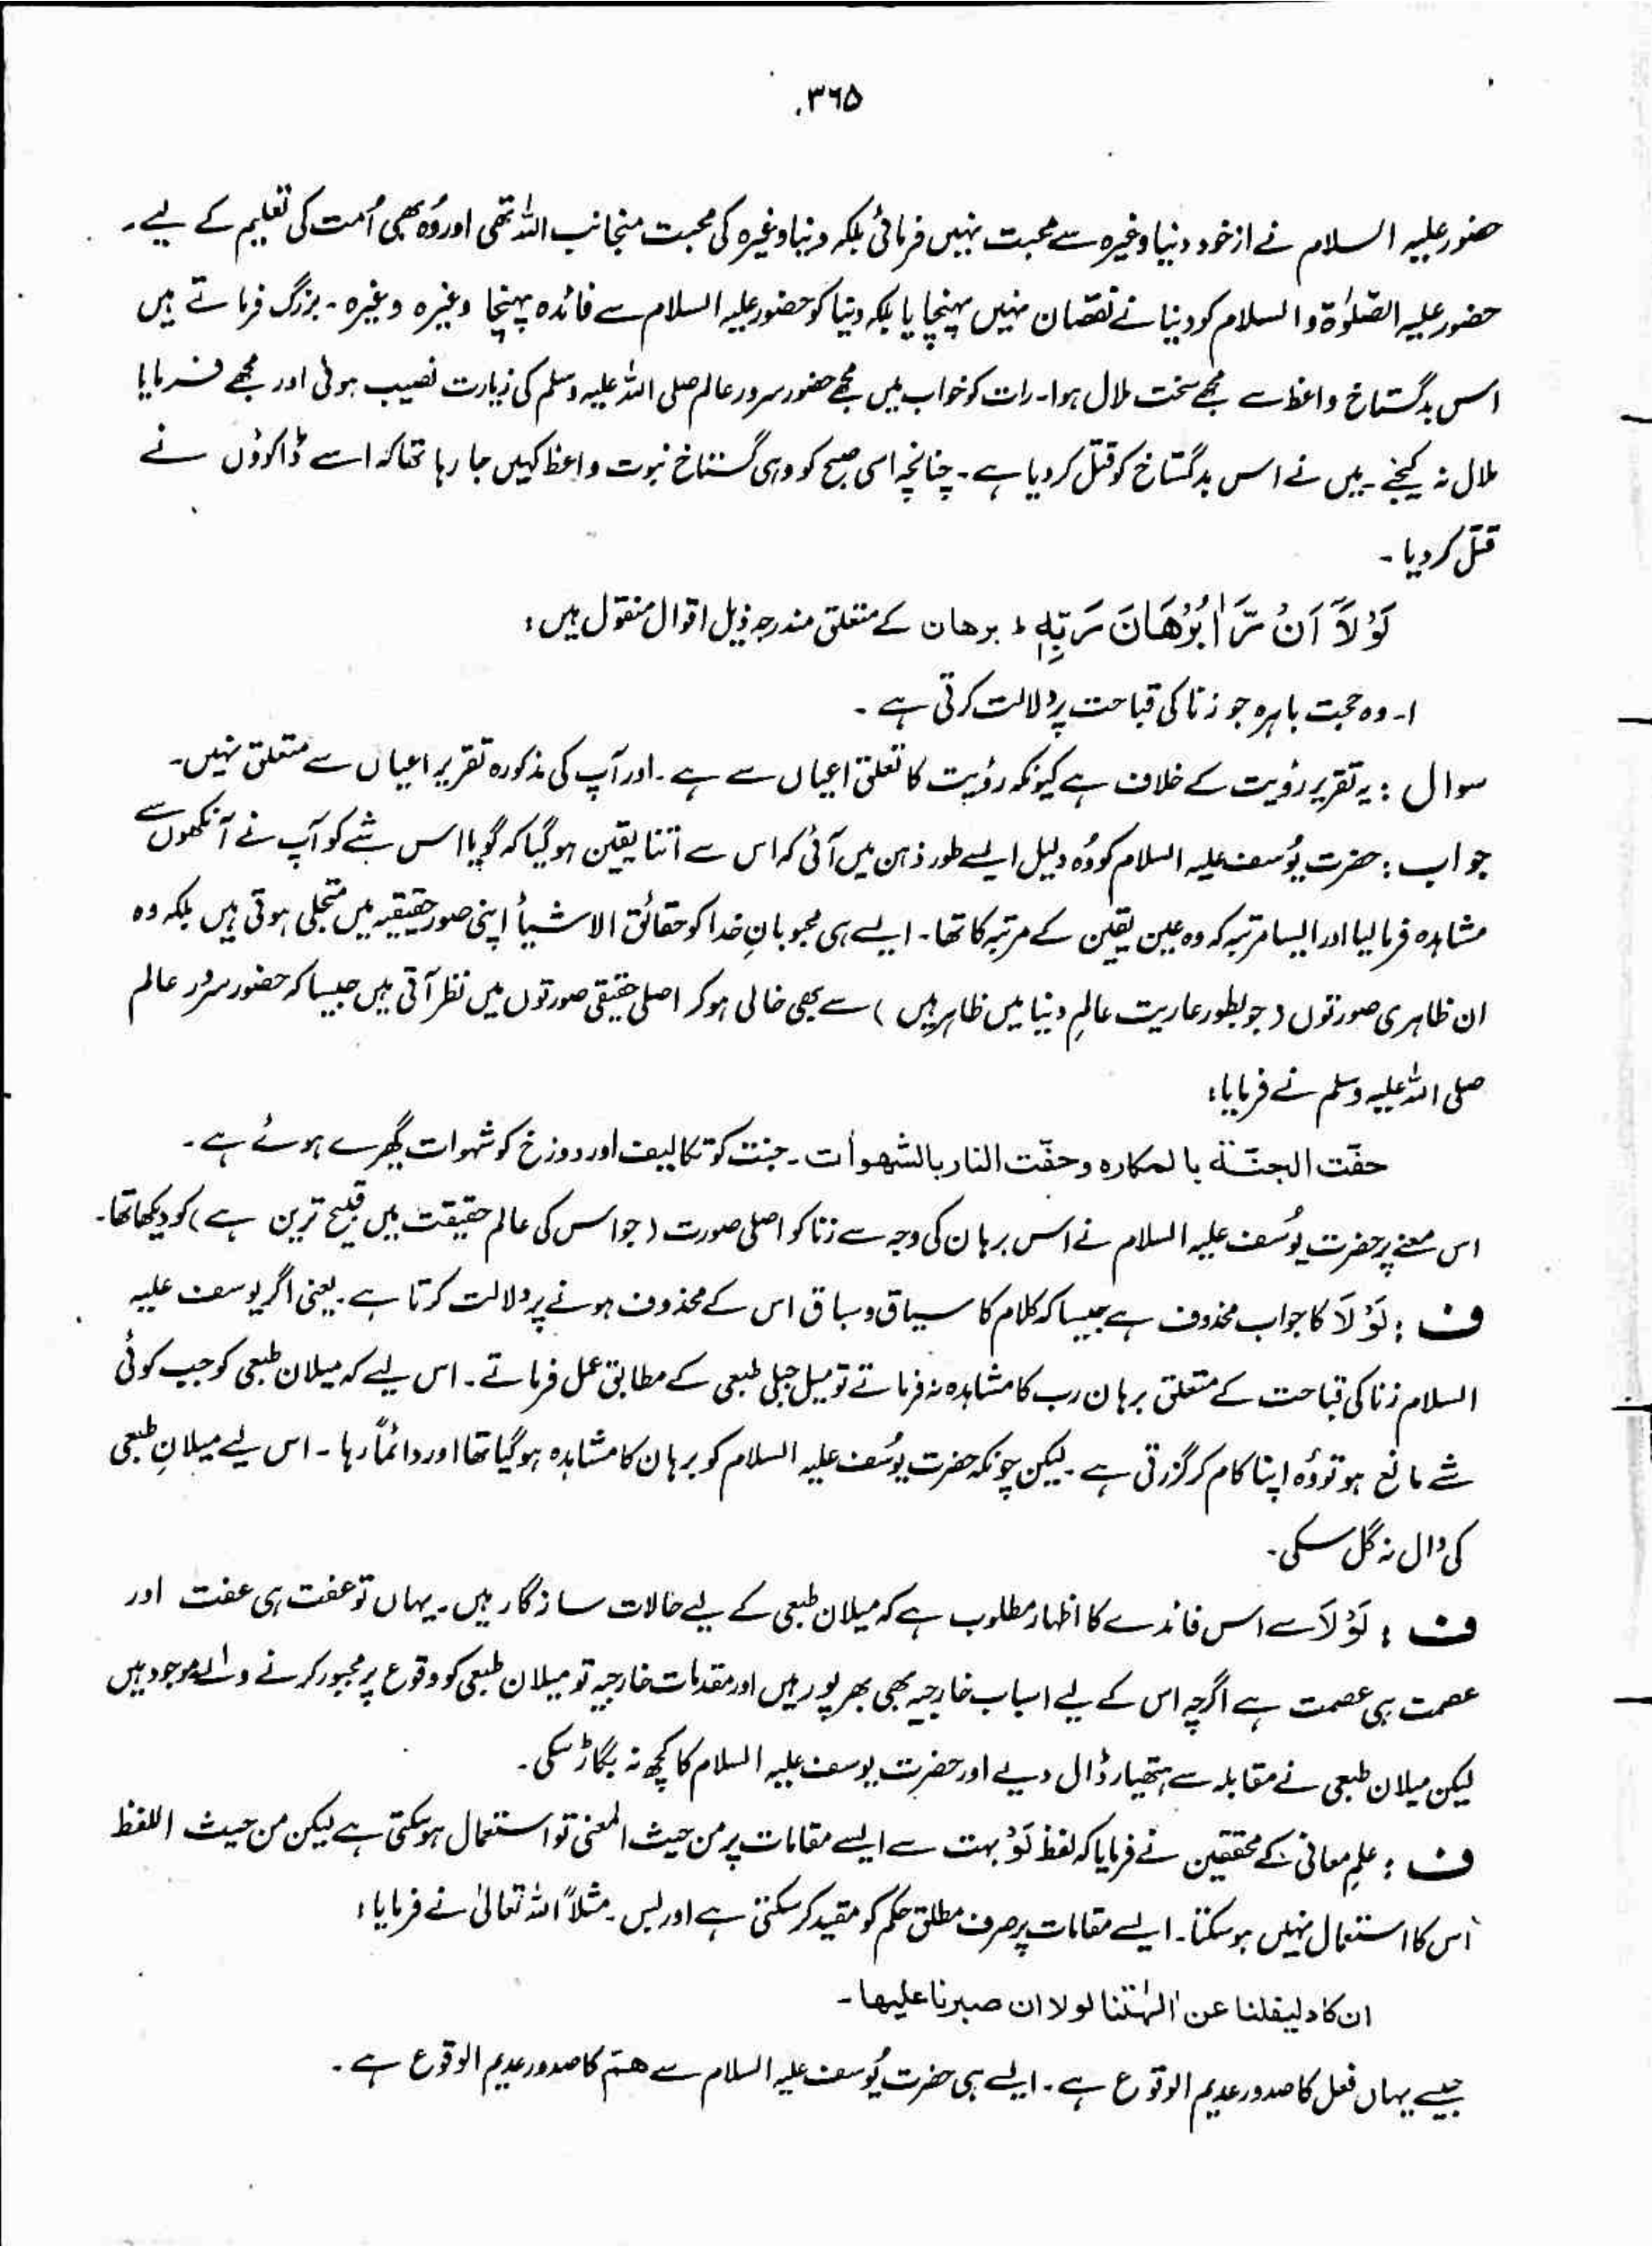 ۳۶۵
حضور علیہ السلام نے از خود دنیا وغیرہ سے محبت نہیں فرمائی بلکہ دنیا وغیرہ کی محبت منجانب اللہ تھی اور وُہ بھی اُمت کی تعلیم کے لیے۔
حضور علیہ الصّلوٰۃ و السلام کو دنیا نے نقصان نہیں پہنچایا بلکہ دنیا کو حضور علیہ السلام سے فائدہ پہنچا وغیرہ وغیرہ۔ بزرگ فرماتے ہیں
اس بدگستاخ واعظ سے مجھے سخت ملال ہوا۔ رات کو خواب میں مجھے حضور سرور عالم صلی اللہ علیہ وسلم کی زیارت نصیب ہوئی اور مجھے فرمایا
ملال نہ کیجئے۔ میں نے اس بدگستاخ کو قتل کر دیا ہے۔ چنانچہ اسی صبح کو وہی گستاخ نبوت واعظ کہیں جا رہا تھا کہ اسے ڈاکوؤں نے
قتل کر دیا۔
لَوْلَآ اَنْ رَّاٰ بُرْهَانَ رَبِّهٖ ط برھان کے متعلق مندرجہ ذیل اقوال منقول ہیں:
۱۔ وہ حجت باہرہ جو زنا کی قباحت پر دلالت کرتی ہے۔
سوال : یہ تقریر رؤیت کے خلاف ہے کیونکہ رؤیت کا تعلق اعیان سے ہے۔ اور آپ کی مذکورہ تقریر اعیان سے متعلق نہیں۔
جواب : حضرت یُوسف علیہ السلام کو وُہ دلیل ایسے طور ذہن میں آئی کہ اس سے اتنا یقین ہو گیا کہ گویا اس شے کو آپ نے آنکھوں سے
مشاہدہ فرما لیا اور ایسا مرتبہ کہ وہ عین یقین کے مرتبہ کا تھا۔ ایسے ہی محبوبانِ خدا کو حقائق الاشیأ اپنی صور حقیقیہ میں متجلی ہوتی ہیں بلکہ وہ
ان ظاہری صورتوں (جو بطور عاریت عالمِ دنیا میں ظاہر ہیں) سے بھی خالی ہو کر اصلی حقیقی صورتوں میں نظر آتی ہیں جیسا کہ حضور سرور عالم
صلی اللہ علیہ وسلم نے فرمایا:
حفّت الجنّة بالمكاره وحفّت النار بالشهوات۔ جنت کو تکالیف اور دوزخ کو شہوات گھیرے ہوئے ہے۔
اس معنے پر حضرت یُوسف علیہ السلام نے اس برہان کی وجہ سے زنا کو اصلی صورت (جو اس کی عالم حقیقت میں قبیح ترین ہے) کو دیکھا تھا۔
ف : لَوْلَا کا جواب محذوف ہے جیسا کہ کلام کا سیاق و سباق اس کے محذوف ہونے پر دلالت کرتا ہے۔ یعنی اگر یوسف علیہ
السلام زنا کی قباحت کے متعلق برہان رب کا مشاہدہ نہ فرماتے تو میل جبلی طبعی کے مطابق عمل فرماتے۔ اس لیے کہ میلان طبعی کو جب کوئی
شے مانع ہو تو وُہ اپنا کام کر گزرتی ہے۔ لیکن چونکہ حضرت یوُسف علیہ السلام کو برہان کا مشاہدہ ہو گیا تھا اور دائماً رہا۔ اس لیے میلانِ طبعی
کی دال نہ گل سکی۔
ف : لَوْلَا سے اس فائدے کا اظہار مطلوب ہے کہ میلان طبعی کے لیے حالات سازگار ہیں۔ یہاں تو عفت ہی عفت اور
عصمت ہی عصمت ہے اگرچہ اس کے لیے اسباب خارجیہ بھی بھرپور ہیں اور مقدمات خارجیہ تو میلان طبعی کو وقوع پر مجبور کرنے والے موجود ہیں
لیکن میلان طبعی نے مقابلہ سے ہتھیار ڈال دیے اور حضرت یوسف علیہ السلام کا کچھ نہ بگاڑ سکی۔
ف : علمِ معانی کے محققین نے فرمایا کہ لفظ لَوْ بہت سے ایسے مقامات پر من حیث المعنی تو استعمال ہو سکتی ہے لیکن من حیث اللفظ
اُس کا استعمال نہیں ہو سکتا۔ ایسے مقامات پر صرف مطلق حکم کو مقید کر سکتی ہے اور بس۔ مثلاً اللہ تعالیٰ نے فرمایا:
ان كاد ليضلنا عن اٰلهتنا لولا ان صبرنا عليها۔
جیسے یہاں فعل کا صدور عدیم الوقوع ہے۔ ایسے ہی حضرت یُوسف علیہ السلام سے همّ کا صدور عدیم الوقوع ہے۔